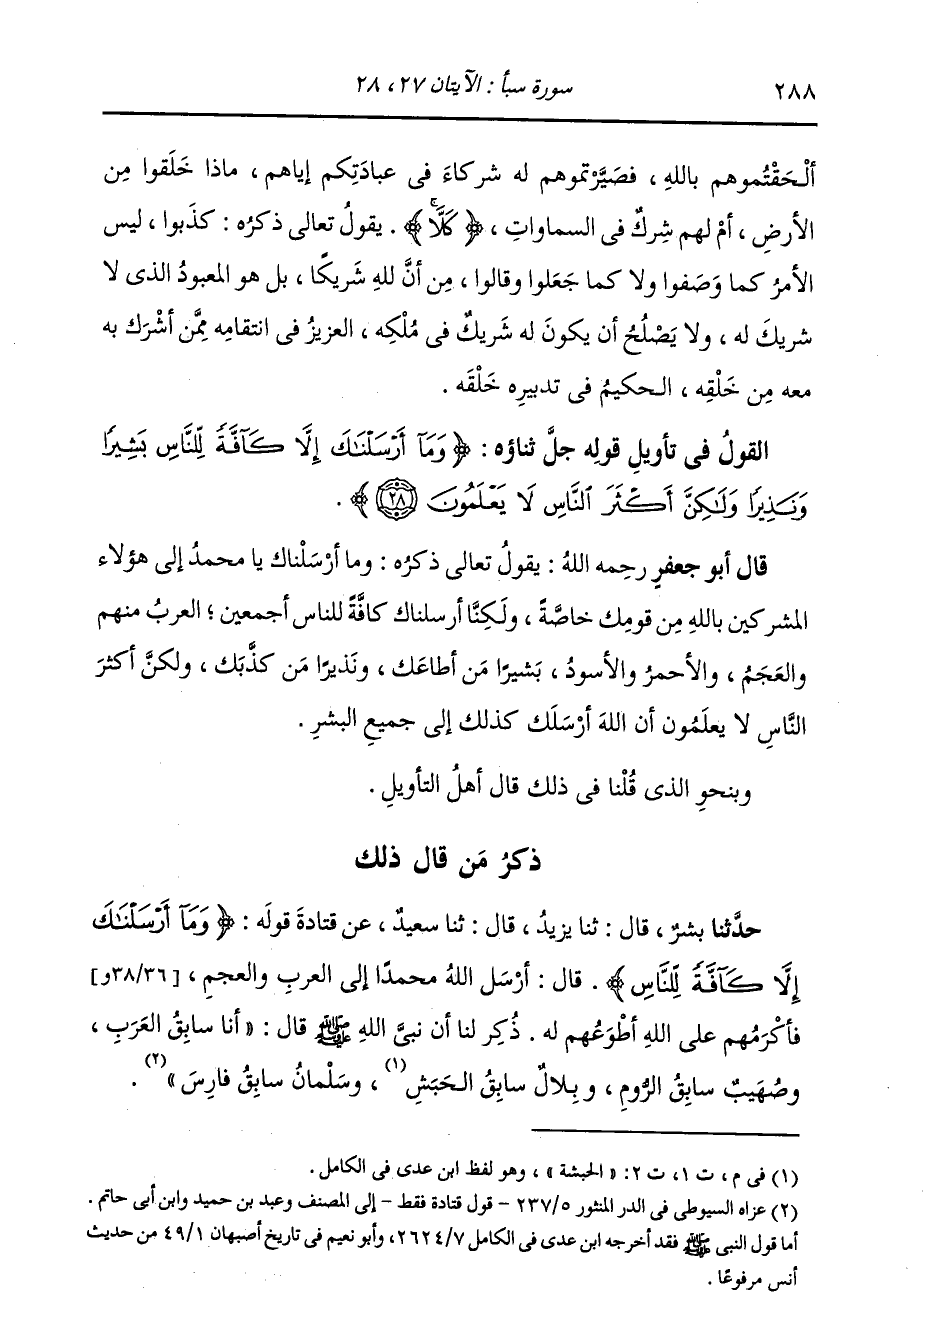 ٢٨٨
سورة سبأ : الآيتان ٢٧ ، ٢٨
ألْحَقْتُموهم باللهِ ، فصَيَّرْتموهم له شركاءَ فى عبادَتِكم إياهم ، ماذا خَلَقوا مِن
الأرضِ ، أمْ لهم شِركٌ فى السماواتِ ، ﴿ كَلَّاۚ ﴾ . يقولُ تعالى ذكرُه : كذَبوا ، ليس
الأمرُ كما وَصَفوا ولا كما جَعَلوا وقالوا ، مِن أنَّ للهِ شَريكًا ، بل هو المعبودُ الذى لا
شريكَ له ، ولا يَصْلُحُ أن يكونَ له شَريكٌ فى مُلْكِه ، العزيزُ فى انتقامِه ممَّن أشْرَك به
معه مِن خَلْقِه ، الحكيمُ فى تدبيرِه خَلْقَه .
القولُ فى تأويلِ قولِه جلَّ ثناؤه : ﴿ وَمَآ أَرْسَلْنَٰكَ إِلَّا كَآفَّةً لِّلنَّاسِ بَشِيرًا
وَنَذِيرًا وَلَٰكِنَّ أَكْثَرَ ٱلنَّاسِ لَا يَعْلَمُونَ ٢٨ ﴾ .
قال أبو جعفرٍ رحِمه اللهُ : يقولُ تعالى ذكرُه : وما أرْسَلْناك يا محمدُ إلى هؤلاء
المشركين باللهِ مِن قومِك خاصَّةً ، ولَكِنَّا أرسلناك كافَّةً للناسِ أجمعين ؛ العربُ منهم
والعَجَمُ ، والأحمرُ والأسودُ ، بَشيرًا مَن أطاعَك ، ونَذيرًا مَن كذَّبك ، ولكنَّ أكثرَ
النَّاسِ لا يعلَمُون أن اللهَ أرْسَلَك كذلك إلى جميعِ البشرِ .
وبنحوِ الذى قُلْنا فى ذلك قال أهلُ التأويلِ .
ذكرُ مَن قال ذلك
حدَّثنا بشرٌ ، قال : ثنا يزيدُ ، قال : ثنا سعيدٌ ، عن قتادةَ قولَه : ﴿ وَمَآ أَرْسَلْنَٰكَ
إِلَّا كَآفَّةً لِّلنَّاسِ ﴾ . قال : أرْسَل اللهُ محمدًا إلى العربِ والعجمِ ، [٣٨/٣٦و]
فأكْرَمُهم على اللهِ أطْوَعُهم له . ذُكِر لنا أن نبىَّ اللهِ ﷺ قال : « أنا سابقُ العَرَبِ ،
وصُهَيبٌ سابقُ الرُّومِ ، و بِلالٌ سابقُ الحَبَشِ(١) ، وسَلْمانُ سابقُ فارِسَ »(٢) .
(١) فى م ، ت ١، ت ٢: « الحبشة » ، وهو لفظ ابن عدى فى الكامل .
(٢) عزاه السيوطى فى الدر المنثور ٢٣٧/٥ - قول قتادة فقط - إلى المصنف وعبد بن حميد وابن أبى حاتم .
أما قول النبى ﷺ فقد أخرجه ابن عدى فى الكامل ٢٦٢٤/٧، وأبو نعيم فى تاريخ أصبهان ٤٩/١ من حديث
أنس مرفوعًا .